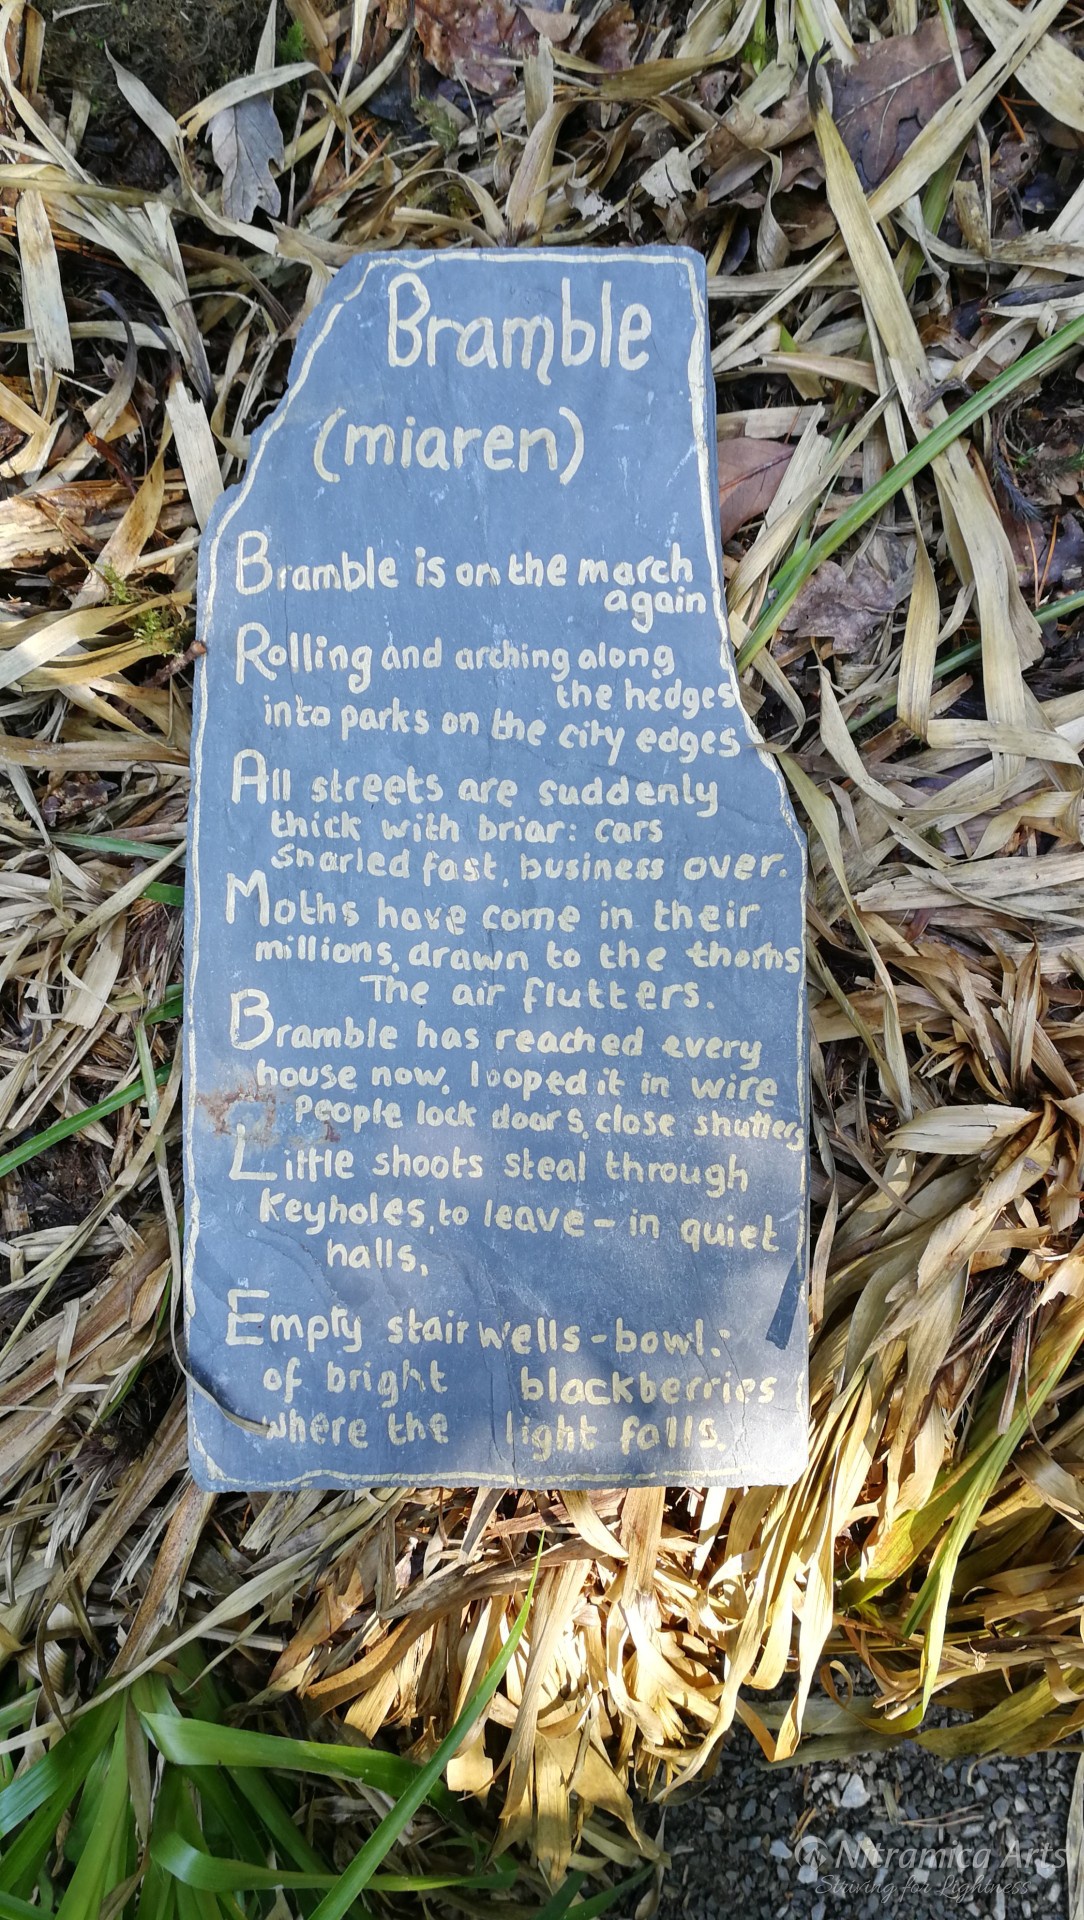 Bramble
(miaren)
Bramble is on the march
again
Rolling and arching along
the hedges
into parks on the city edges
All streets are suddenly
thick with briar: cars
snarled fast, business over.
Moths have come in their
millions, drawn to the thorns
The air flutters.
Bramble has reached every
house now, looped it in wire
People lock doors, close shutters
Little shoots steal through
Keyholes, to leave – in quiet
halls,
Empty stairwells – bowl:
of bright blackberries
where the light falls.
Nitramica Arts
Striving for Lightness